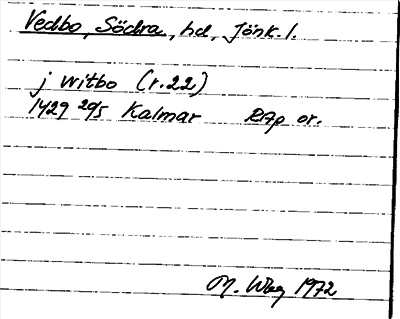 Vedbo, Södra, hd, Jönk. l.
j witbo (r. 22)
1429 20/5 Kalmar RAp or.
M. Wbg 1972